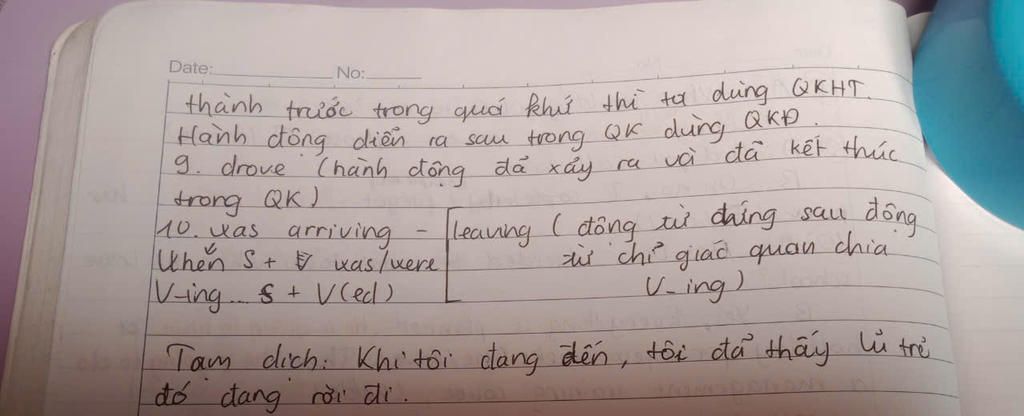 Date: No:
thành trước trong quá khứ thì ta dùng QKHT.
Hành động diễn ra sau trong QK dùng QKĐ.
9. drove (hành động đã xảy ra và đã kết thúc
trong QK)
10. was arriving - leaving (động từ đứng sau động
When S + was/were từ chỉ giác quan chia
V-ing... S + V(ed) V-ing)
Tạm dịch: Khi tôi đang đến, tôi đã thấy lũ trẻ
đó đang rời đi.